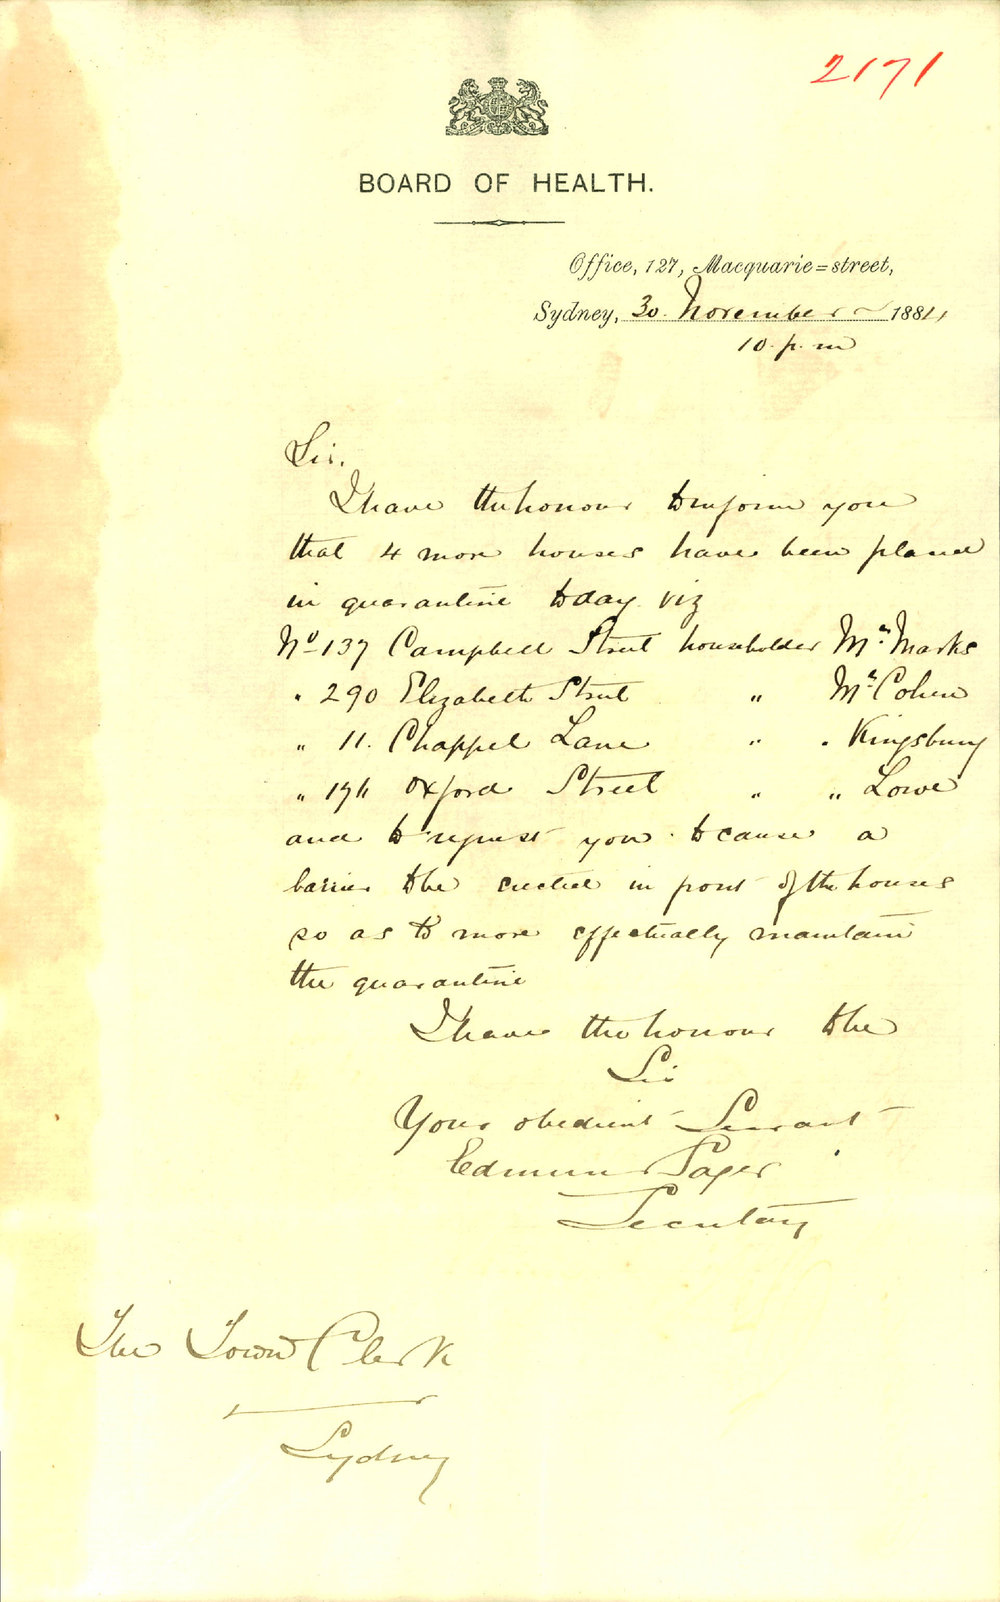 2171
BOARD OF HEALTH.
Office, 127, Macquarie=street,
Sydney, 30. November 1881,
10. p. m
Sir.
I have the honour to inform you
that 4 more houses have been placed
in quarantine today. viz
No 137 Campbell Street householder Mr. Marks
" 290 Elizabeth Street " Mr. Cohen
" 11. Chappel Lane " " Kingsbury
" Oxford Street " " Lowe
and to request you to cause a
barrier to be erected in front of the houses
so as to more effectually maintain
the quarantine
I have the honour to be
Sir
Your obedient Servant
Edmund Sager
Secretary
The Town Clerk
Sydney